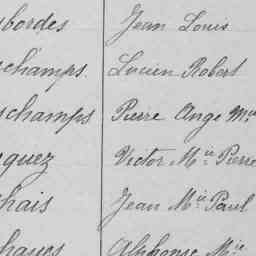 bordes Jean Louis
champs. Lucien Robert
schamps Pierre Ange Mie
quez Victor Mie Pierre
hais Jean Mie Paul
hayes Alphonse Mie